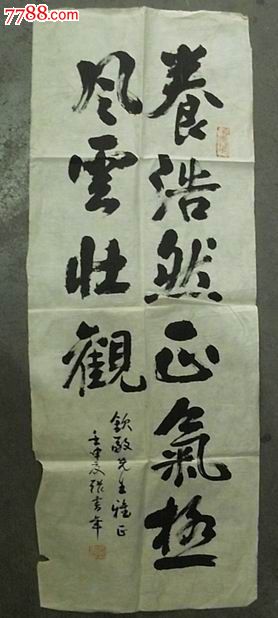 7788.com
養浩然正氣極
風雲壯觀
欽敬先生雅正
壬申夏張吉年